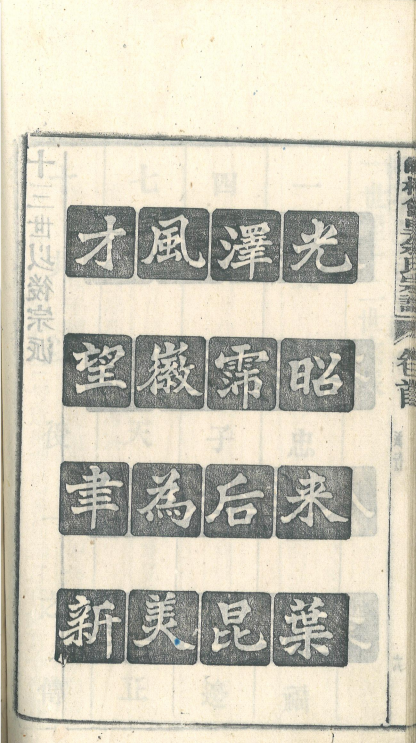 卷首
光昭来葉
澤霈后昆
風徽為美
才望聿新
十三世以後宗派